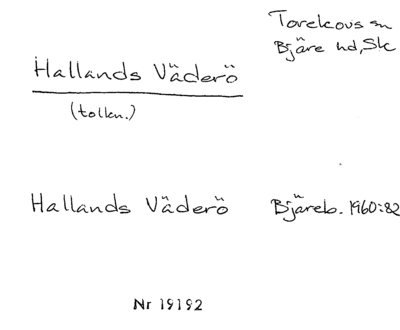 Torekovs sn
Bjäre hd, Sk
Hallands Väderö
(tolkn.)
Hallands Väderö Bjäreb. 1960:82
Nr 19192